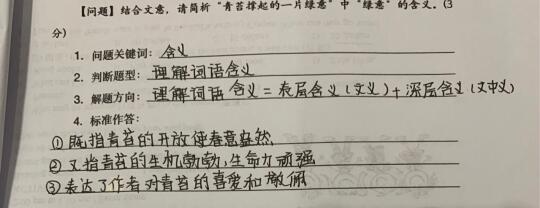 【问题】结合文意，请简析“青苔撑起的一片绿意”中“绿意”的含义。(3
分)
1. 问题关键词：含义
2. 判断题型：理解词语含义
3. 解题方向：理解词语含义=表层含义(文义)+深层含义(文中义)
4. 标准作答：
①既指青苔的开放使春意盎然
②又指青苔的生机勃勃,生命力顽强
③表达了作者对青苔的喜爱和敬佩